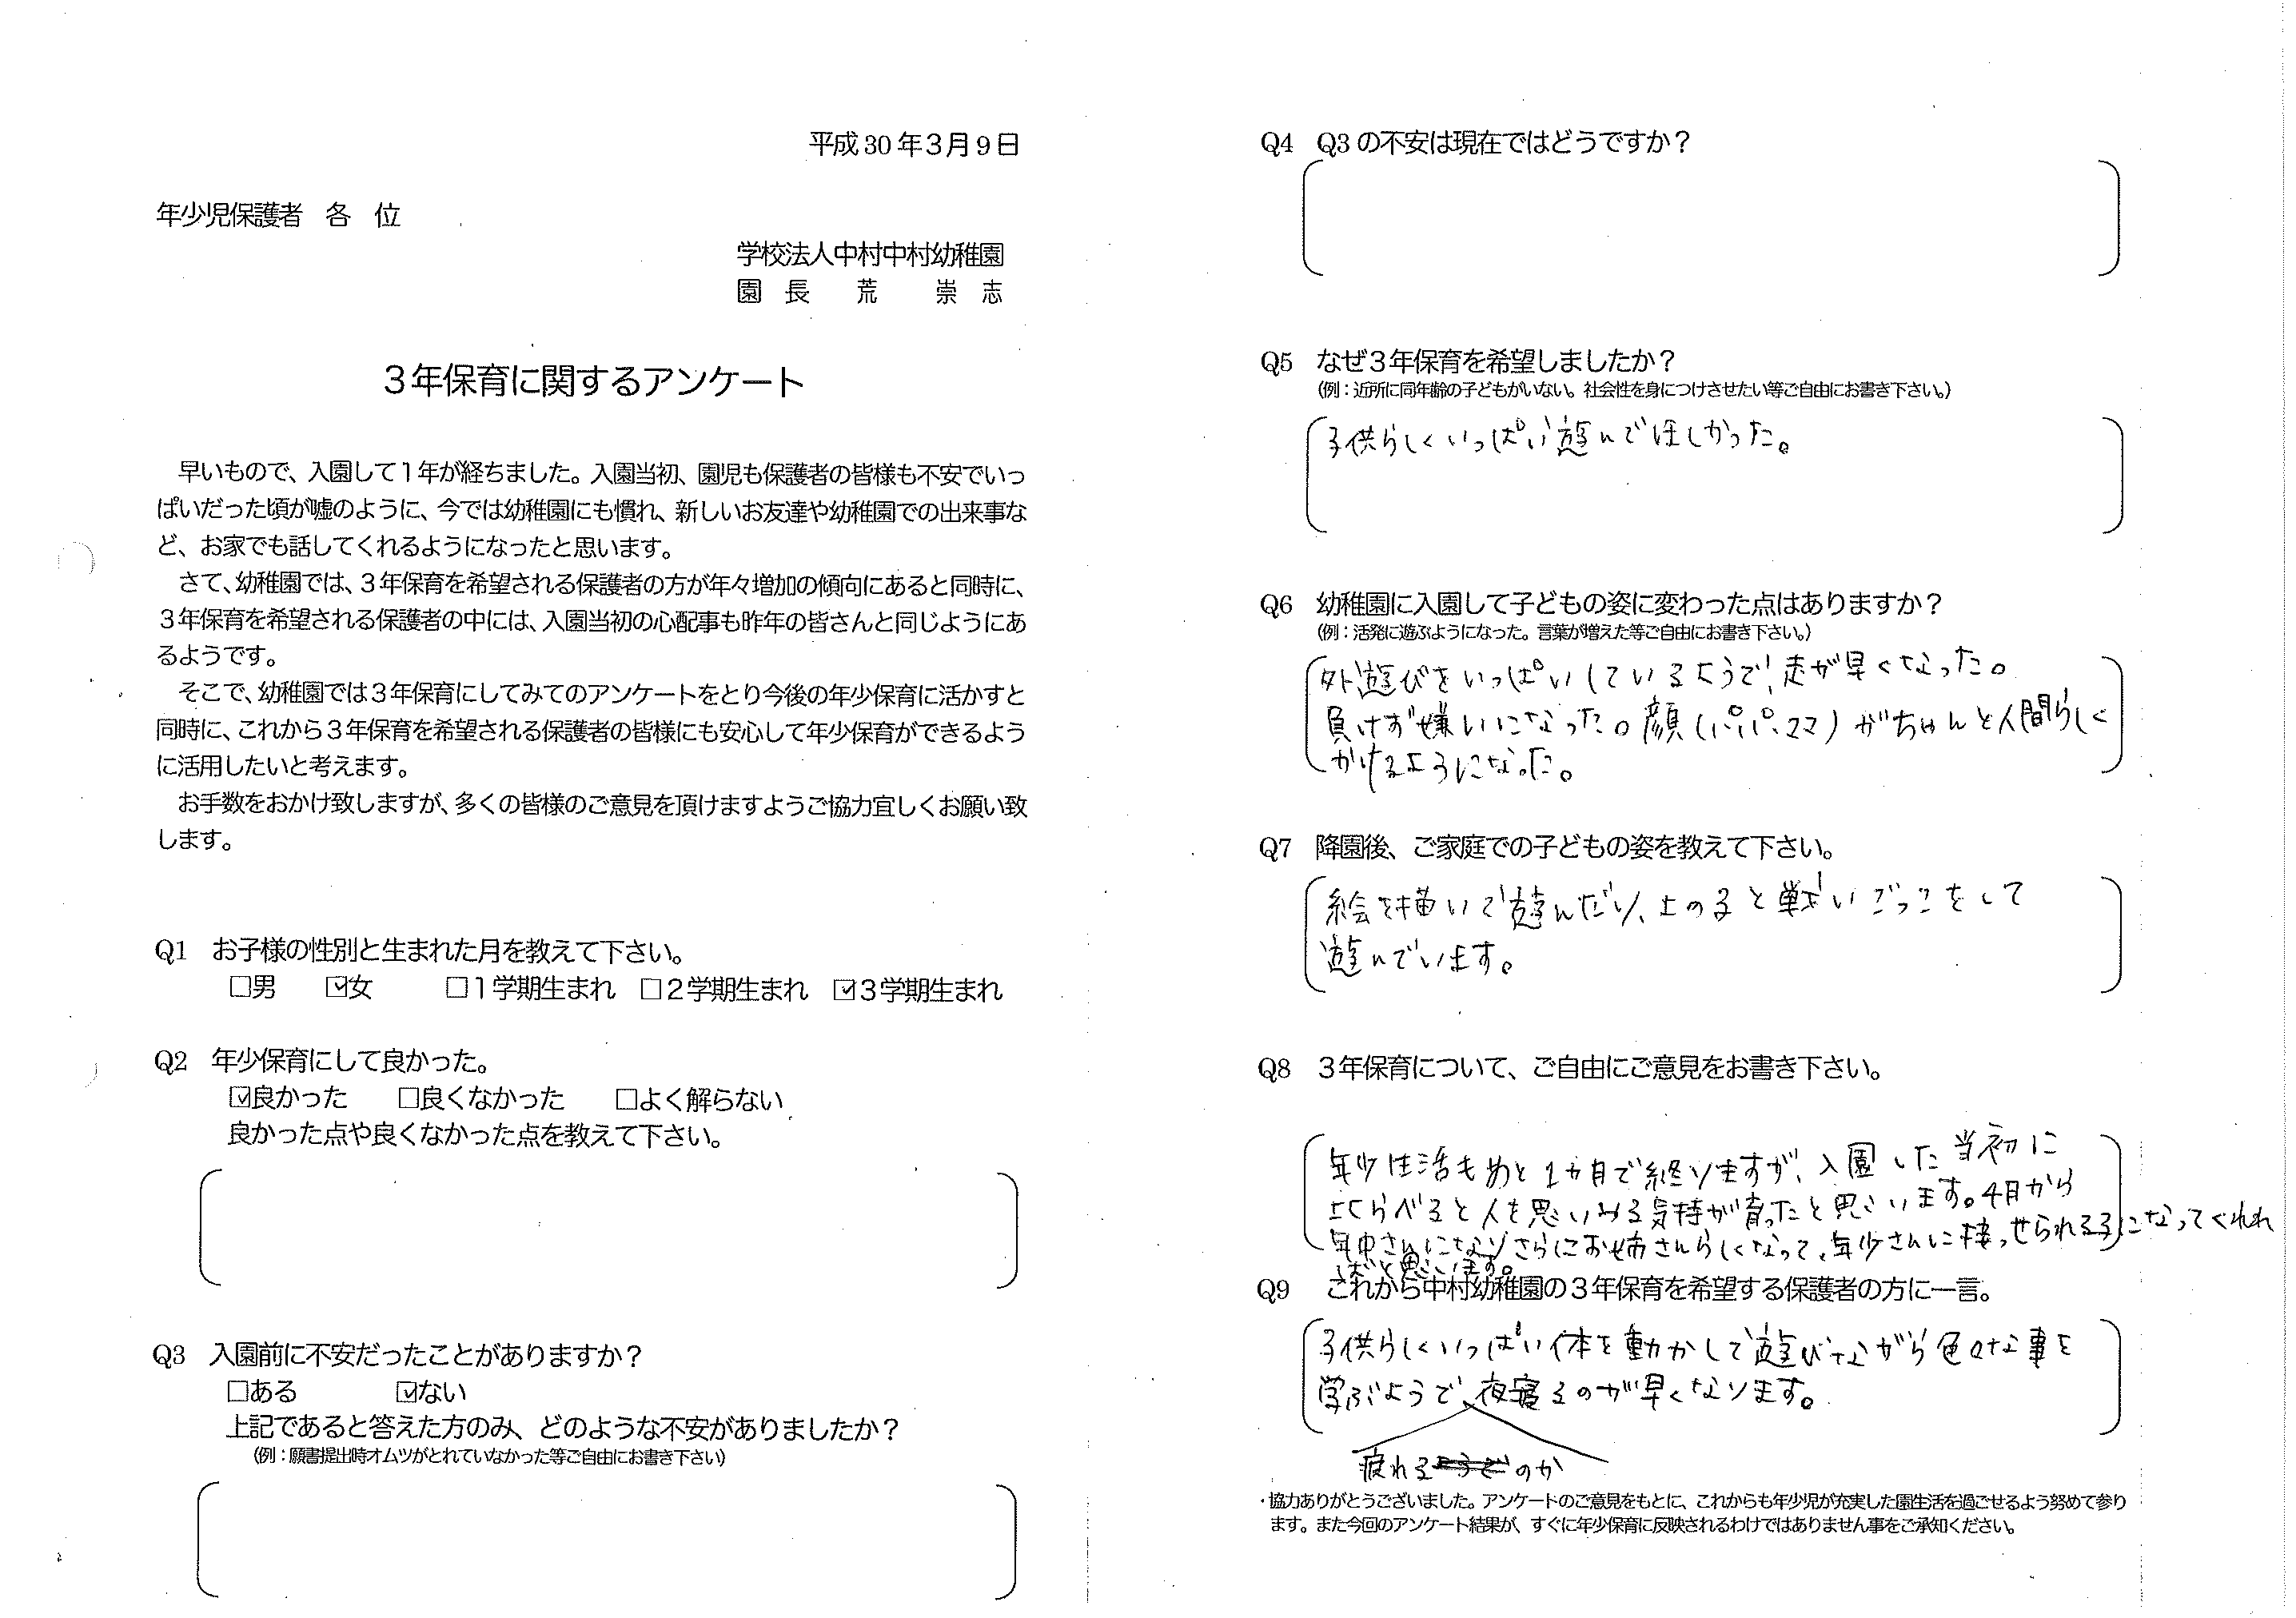 平成30年3月9日
年少児保護者 各 位
学校法人中村中村幼稚園
園 長 荒 崇 志
3年保育に関するアンケート
早いもので、入園して1年が経ちました。入園当初、園児も保護者の皆様も不安でいっ
ぱいだった頃が嘘のように、今では幼稚園にも慣れ、新しいお友達や幼稚園での出来事な
ど、お家でも話してくれるようになったと思います。
さて、幼稚園では、3年保育を希望される保護者の方が年々増加の傾向にあると同時に、
3年保育を希望される保護者の中には、入園当初の心配事も昨年の皆さんと同じようにあ
るようです。
そこで、幼稚園では3年保育にしてみてのアンケートをとり今後の年少保育に活かすと
同時に、これから3年保育を希望される保護者の皆様にも安心して年少保育ができるよう
に活用したいと考えます。
お手数をおかけ致しますが、多くの皆様のご意見を頂けますようご協力宜しくお願い致
します。
Q1 お子様の性別と生まれた月を教えて下さい。
□男 ☑女 □1学期生まれ □2学期生まれ ☑3学期生まれ
Q2 年少保育にして良かった。
☑良かった □良くなかった □よく解らない
良かった点や良くなかった点を教えて下さい。
Q3 入園前に不安だったことがありますか?
□ある ☑ない
上記であると答えた方のみ、どのような不安がありましたか?
(例:願書提出時オムツがとれていなかった等ご自由にお書き下さい)
Q4 Q3の不安は現在ではどうですか?
Q5 なぜ3年保育を希望しましたか?
(例:近所に同年齢の子どもがいない。社会性を身につけさせたい等ご自由にお書き下さい。)
子供らしくいっぱい遊んでほしかった。
Q6 幼稚園に入園して子どもの姿に変わった点はありますか?
(例:活発に遊ぶようになった。言葉が増えた等ご自由にお書き下さい。)
外遊びをいっぱいしているようで、走が早くなった。
負けず嫌いになった。顔(パパ、ママ)がちゃんと人間らしく
かけるようになった。
Q7 降園後、ご家庭での子どもの姿を教えて下さい。
絵を描いて遊んだり、上の子と戦いごっこをして
遊んでいます。
Q8 3年保育について、ご自由にご意見をお書き下さい。
年少生活もあと1カ月で終りますが、入園した当初に
比らべると人を思いやる気持が育ったと思います。4月から
年中さんになりさらにお姉さんらしくなって、年少さんに接っせられる子になってくれれ
ばと思います。
Q9 これから中村幼稚園の3年保育を希望する保護者の方に一言。
子供らしくいっぱい体を動かして遊びながら色々な事を
学ぶようで、夜寝るのが早くなります。
疲れるのか
・協力ありがとうございました。アンケートのご意見をもとに、これからも年少児が充実した園生活を過ごせるよう努めて参り
ます。また今回のアンケート結果が、すぐに年少保育に反映されるわけではありません事をご承知ください。